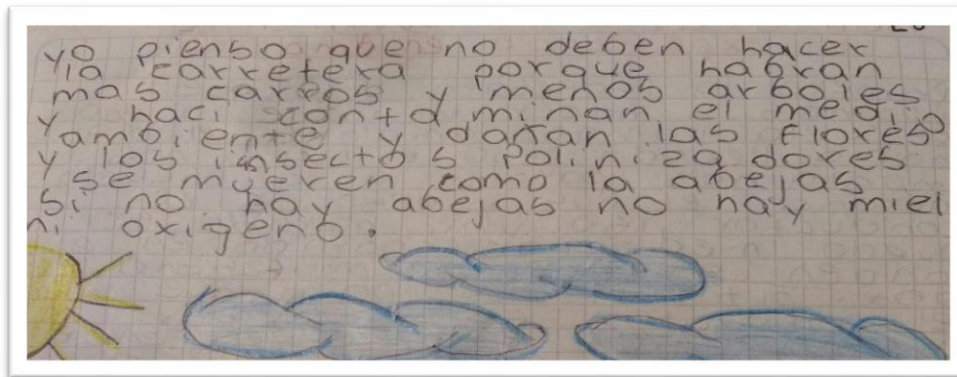 yo pienso que no deben hacer
la carretera porque habran
mas carros y menos arboles
y haci contaminan el medio
yambiente y dañan las Flores
y los insectos polinizadores
se mueren como la abejas
si no hay abejas no hay miel
ni oxigeno.